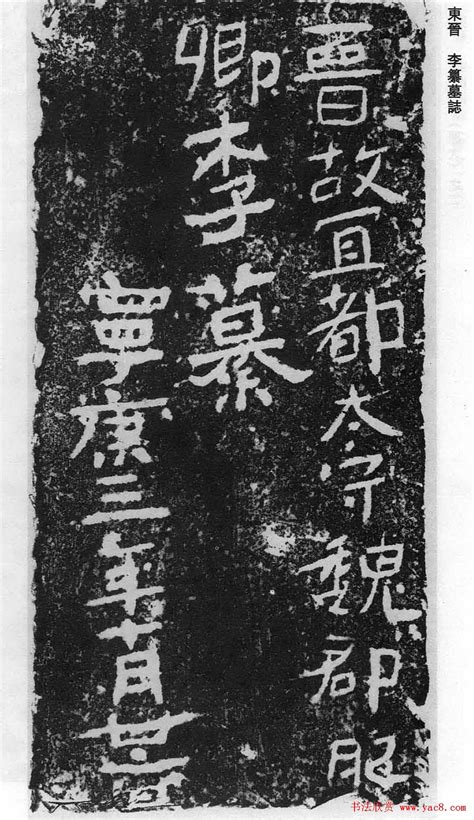 東晉 李纂墓誌
晉故宜都太守魏郡肥
鄉李纂
寧康三年十月廿六日
书法欣赏 www.yac8.com